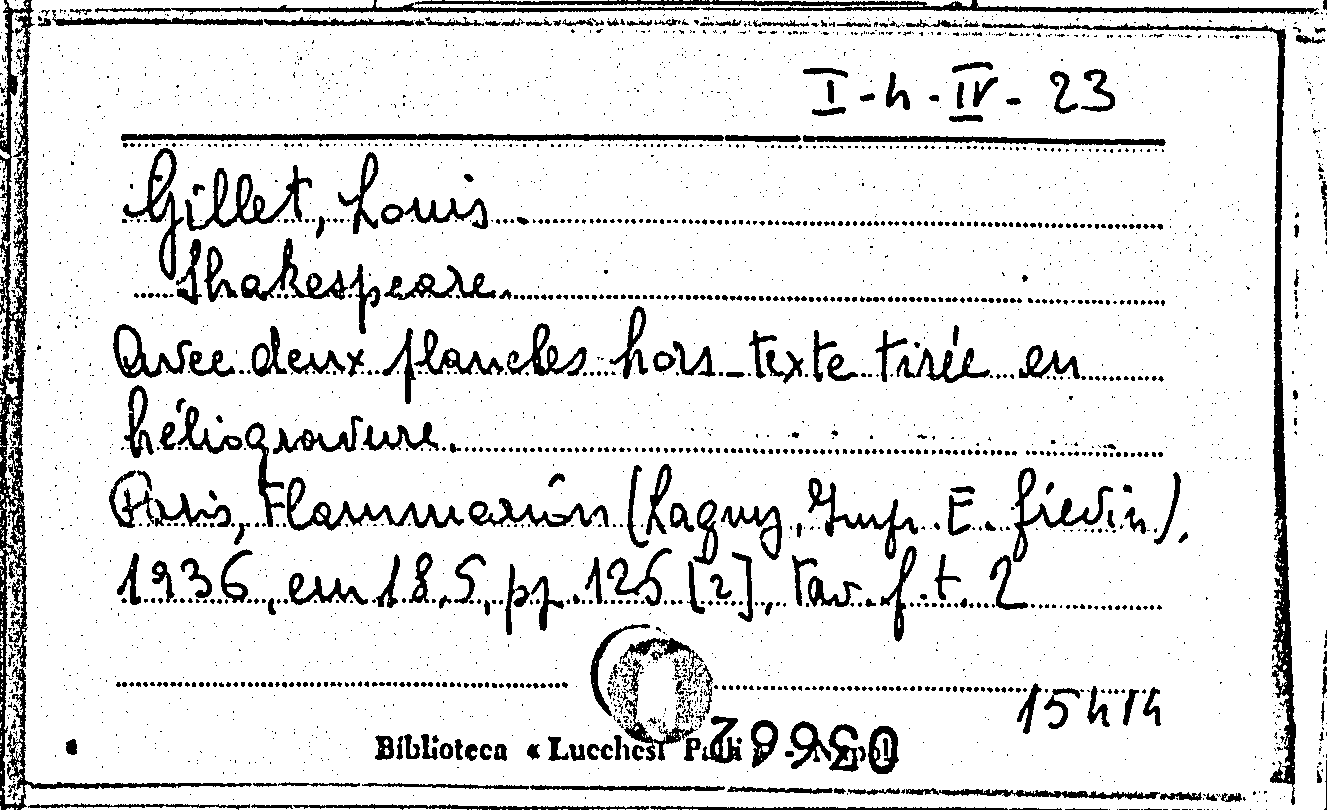 I-4-IV-23
Gillet, Louis.
Shakespeare.
Avec deux planches hors-texte tirée en
héliogravure.
Paris, Flammarion (Lagny, Imp. E. Grévin),
1936, cm 18,5, pp. 125 [2], Tav. f.t. 2
15414
Biblioteca « Lucchesi Palli » - Napoli